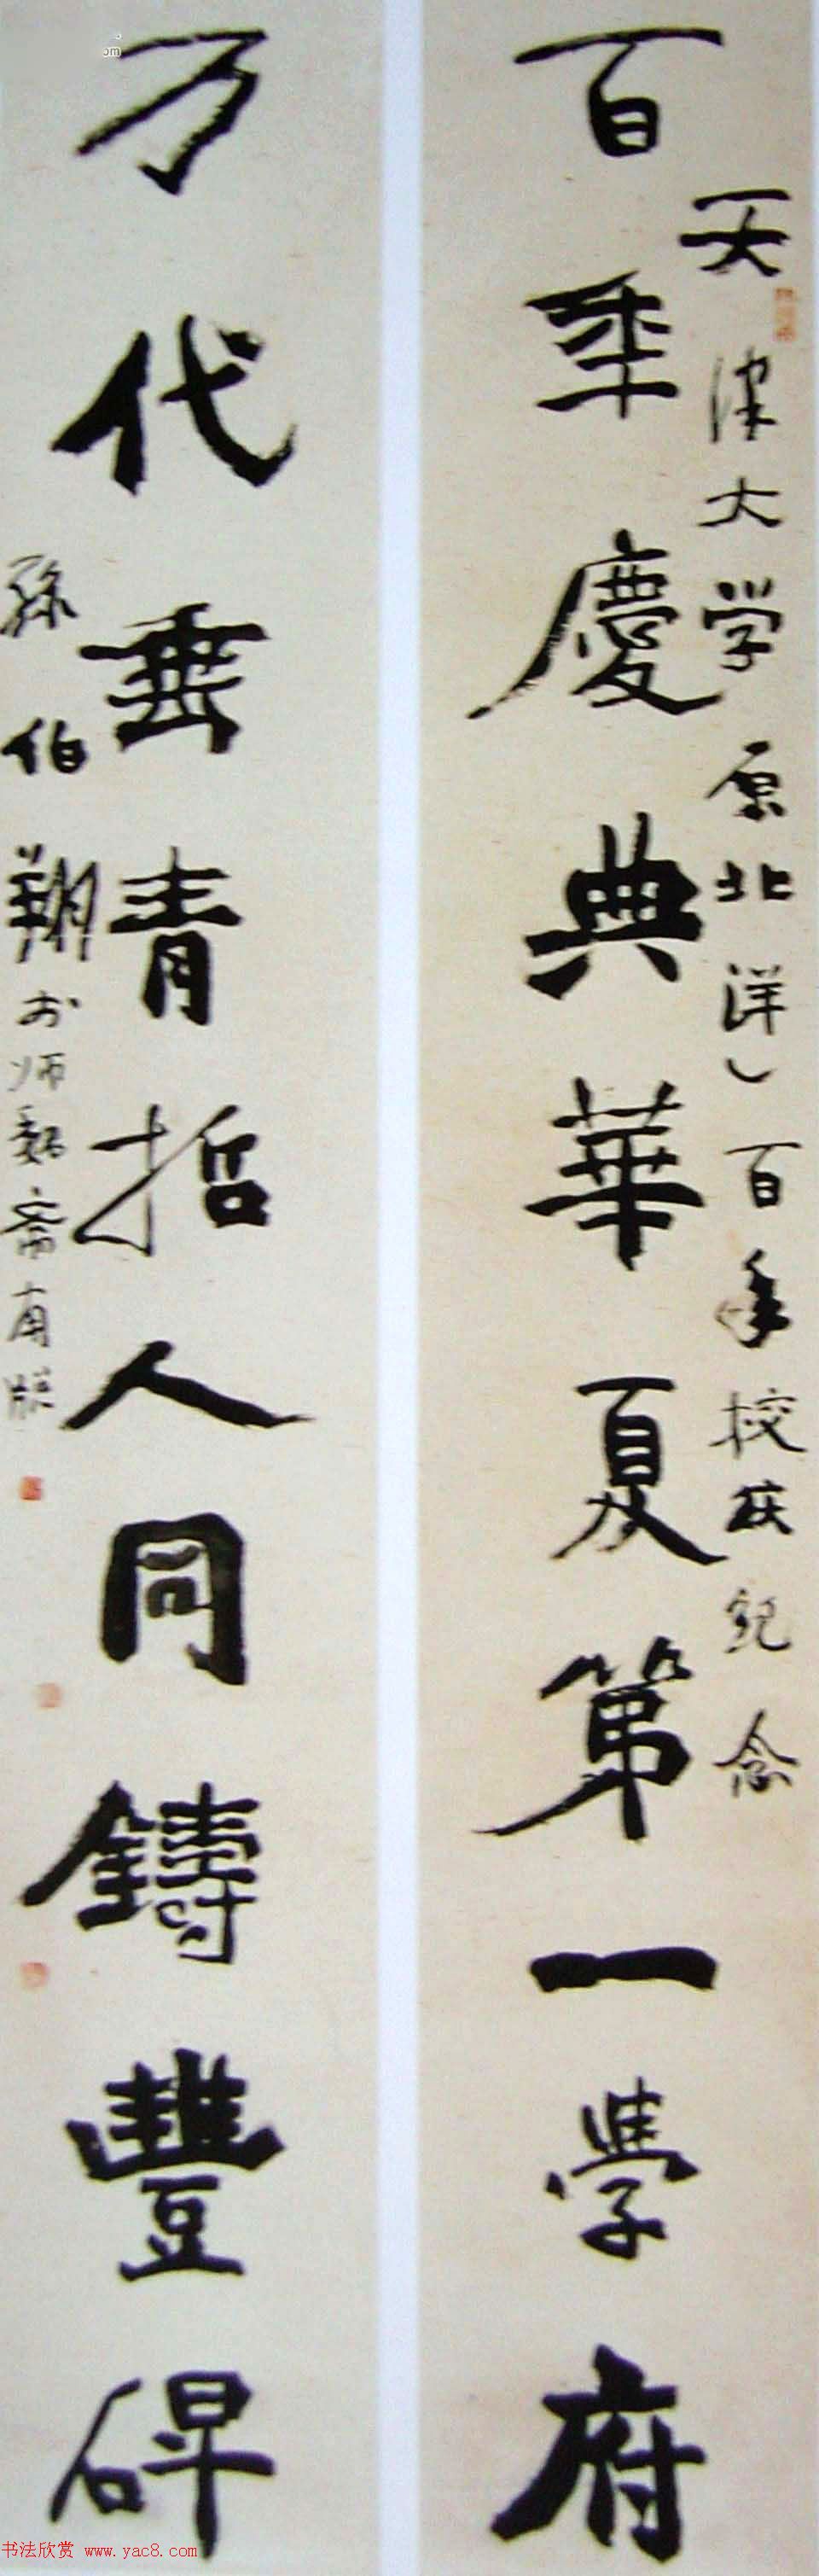 百年慶典華夏第一學府
天津大学原北洋）百年校庆纪念
万代垂青哲人同鑄豐碑
孙伯翔於师魏斋南牖
书法欣赏 www.yac8.com
om